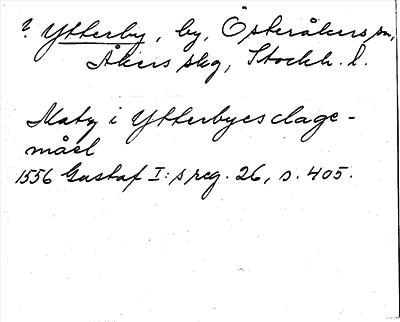 ? Ytterby, by, Österåkers sn,
Åkers skg, Stockh. l.
Maty i Ytterbyes clage-
måel
1556 Gustaf I:s reg. 26, s. 405.